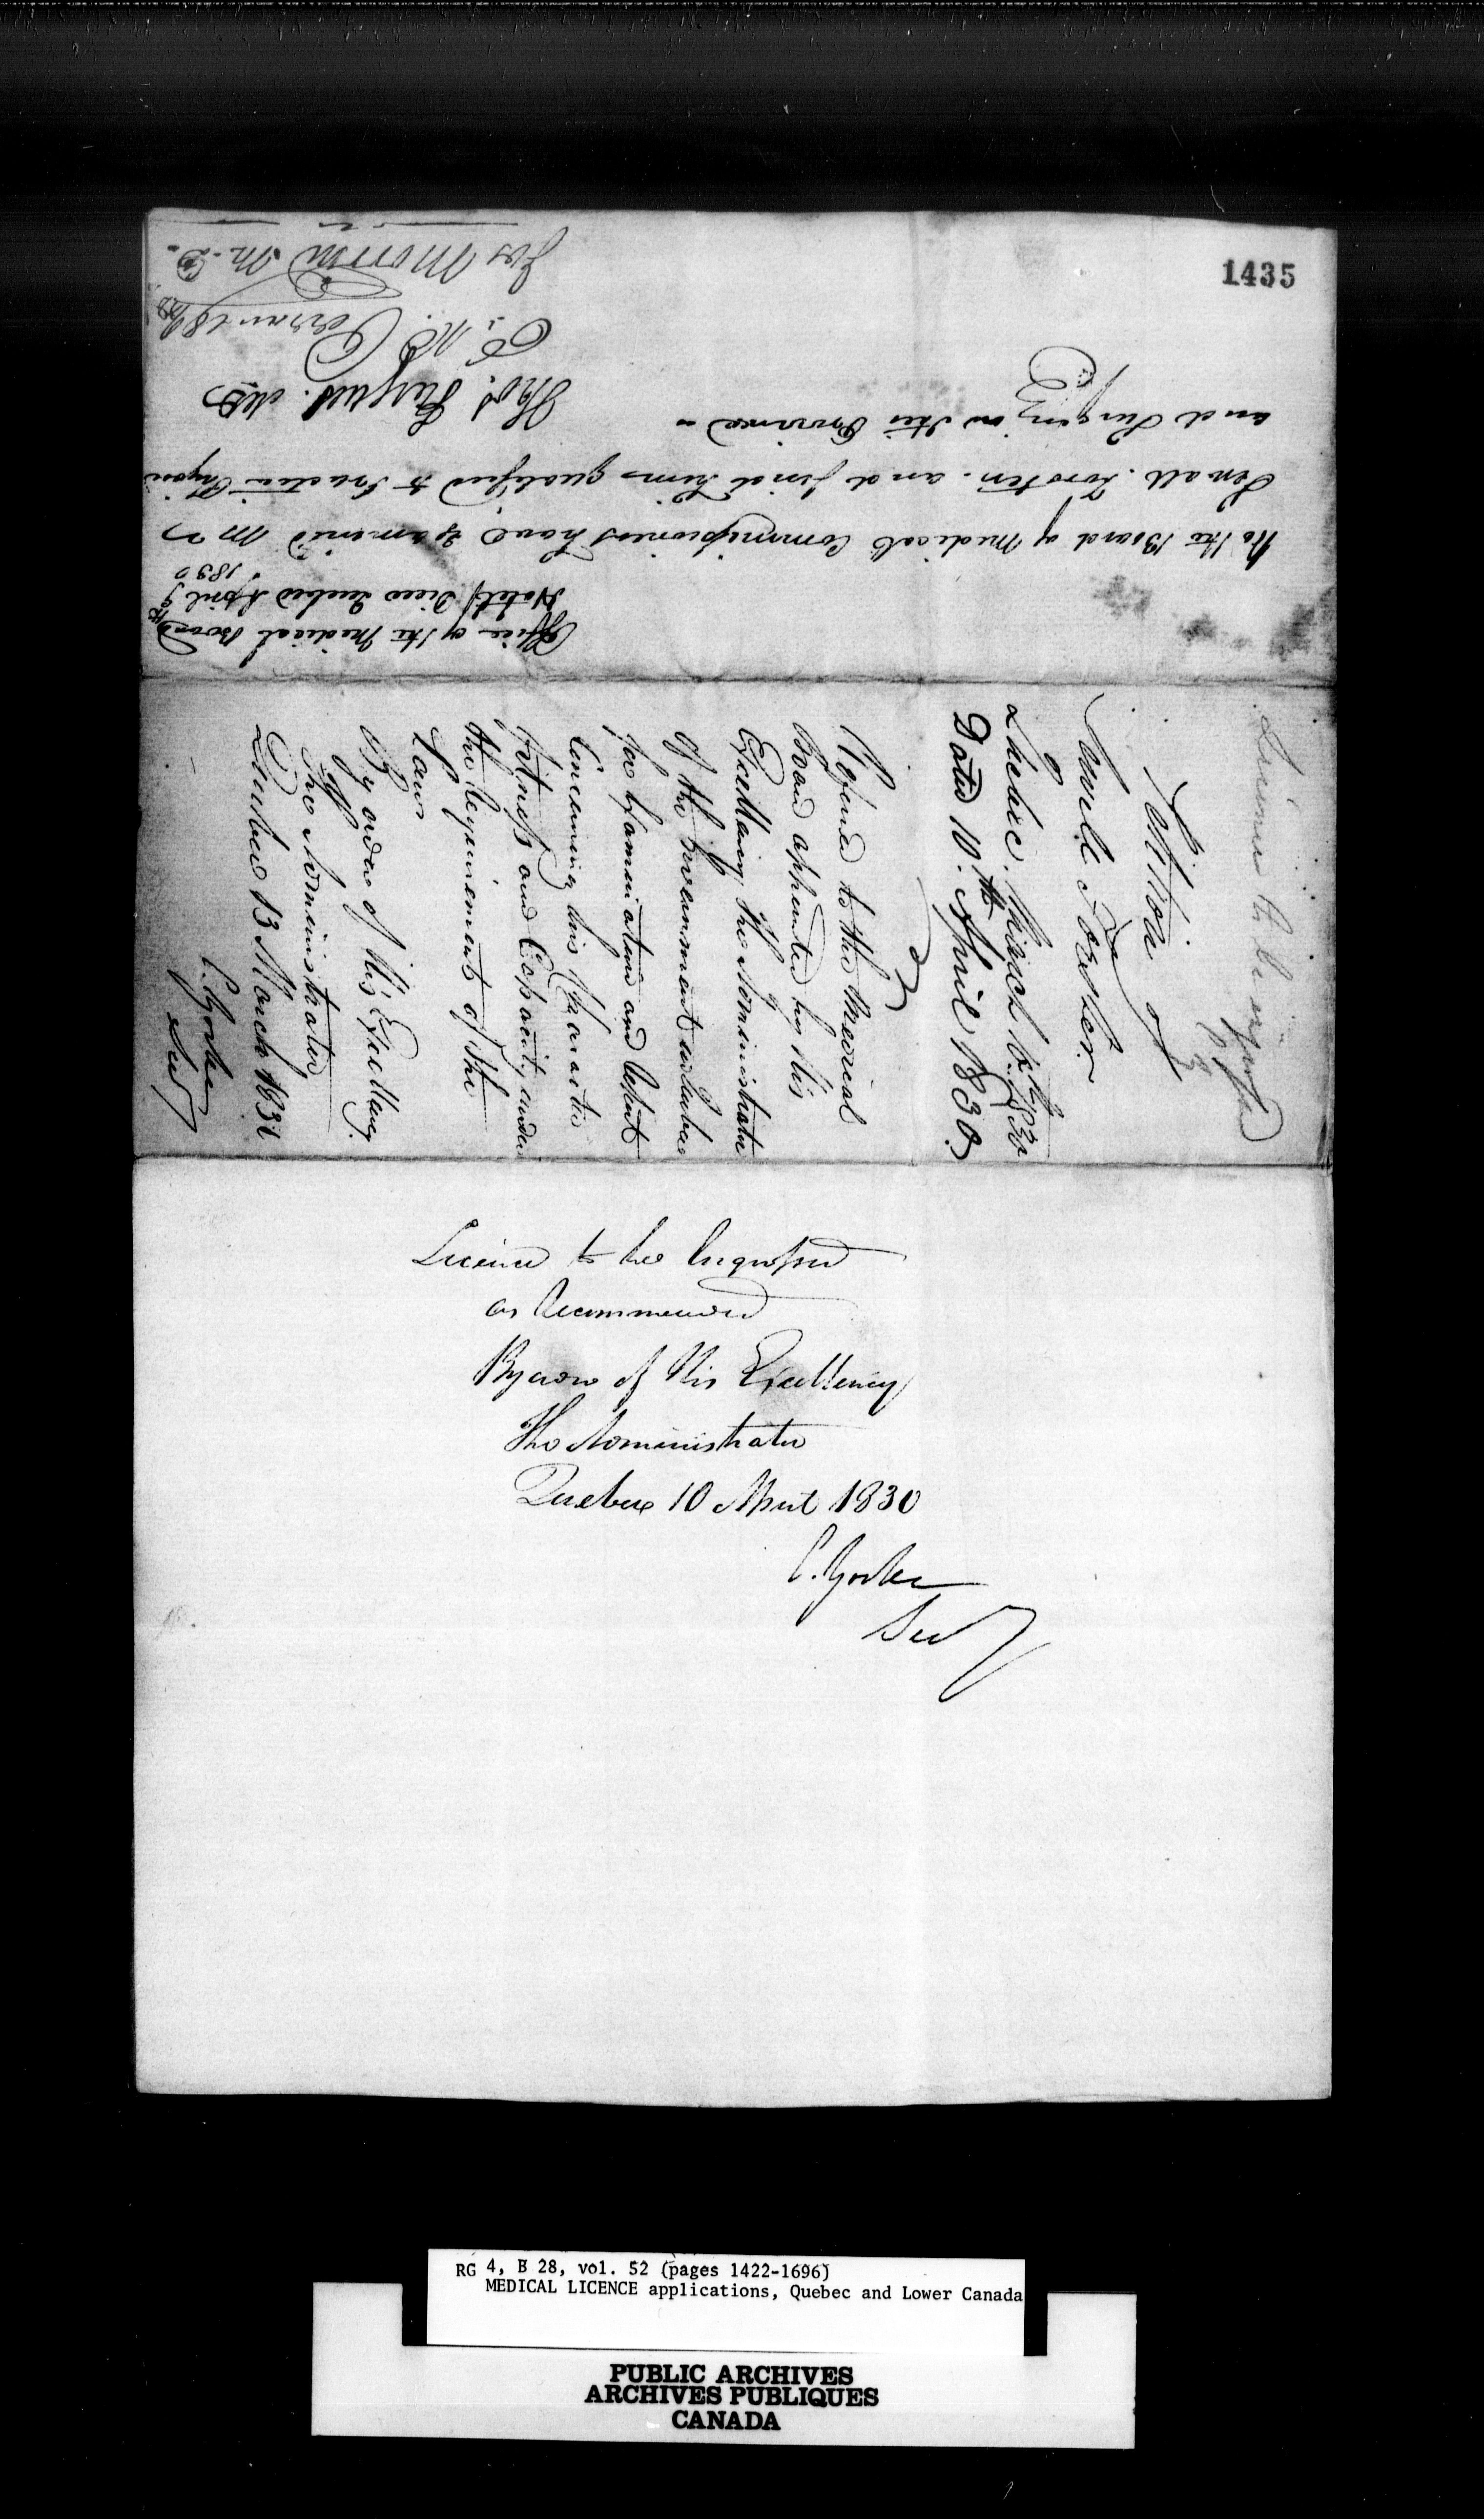 1435
Office of the Medical Board
Hotel Dieu Quebec April 9th
1830
We the Board of Medical Commissioners have Examined Mr
Sewall Forster. and find him qualified to Practice Physic
and Surgery in this Province -
Thos. Fargues. MD
Jos Morrin M.D.
Licence to be
Petition
of
Sewell Forster.
Quebec. March 12th 1830
Dated 10th April 1830.
Refered to the Medical
Board appointed by His
Excellency The Administrator
of the Government in Quebec
for Examination and Report
Concerning his Character
fitness and Capacity under
the requirements of The
Laws
By order of His Excellency.
The Administrator
Quebec 13 March 1830
C. Yorke
Secy
Licence to be Engrossed
as Recommended
By order of His Excellency
The Administrator
Quebec 10 April 1830
C. Yorke
Secy
RG 4, B 28, vol. 52 (pages 1422-1696)
MEDICAL LICENCE applications, Quebec and Lower Canada
PUBLIC ARCHIVES
ARCHIVES PUBLIQUES
CANADA